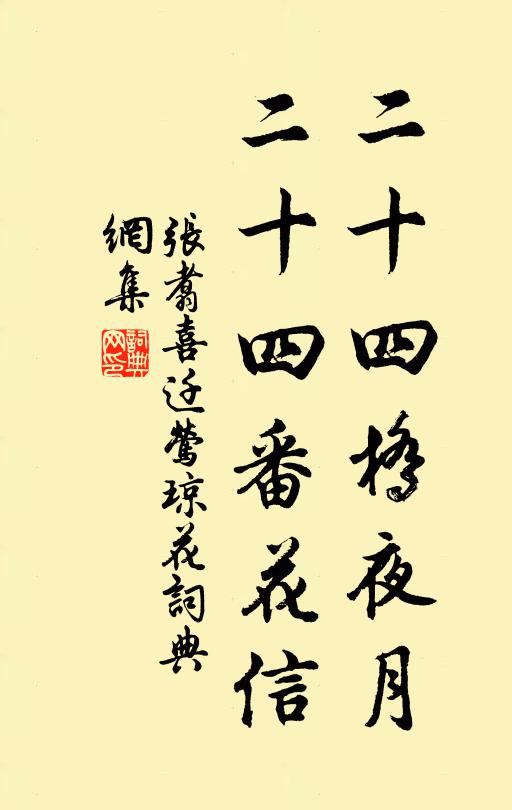 二十四橋夜月
二十四番花信
張翥喜迁鶯琼花詞典
網集
詞典
网印